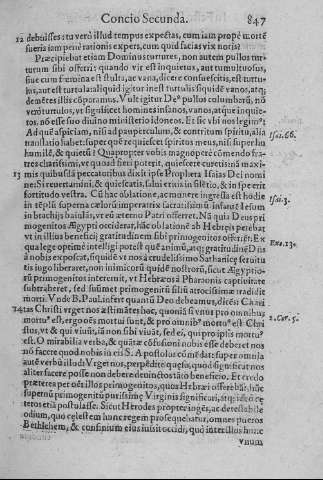 Concio Secunda. 847
12 debuisses: tu verò illud tempus expectas, cum iam propè mortē
fueris iam penè rationis expers, cum quid facias vix noris?
Præcipiebat etiam Dominus turtures, non autem pullos tur-
turum sibi offerri: quando vir est inquietus, aut tumultuosus,
siue cum fœmina est stulta, ac vana, dicere consueuistis, est turtu-
lus, aut est turtula: aliquid igitur inest turtulis siquidē vanos, atq;
demētes illis cōparamus. Vult igitur De⁹ pullos columbarū, nō
verò turtulos, vt significet homines insanos, vanos, atque inquie-
tos, nō esse suo diuino ministerio idoneos. Et sic vbi nos legim⁹:
Ad quē aspiciam, nisi ad pauperculum, & contritum spiritu, alia
translatio habet: super quē requiescet spiritus meus, nisi super hu
humilē, & quietū? Quapropter vobis magnopere cōmendo fra-
tres charissimi, vt quoad fieri poterit, quiescere curetis in ó maxi-
13 mis quibusq́; peccatoribus dixit ipse Propheta Isaias Dei nomi
ne: Si reuertamini, & quiescatis, salui eritis in silētio, & in spe erit
fortitudo vestra. Cū hac oblatione, ac munere ingressa est hodie
in tēplū superna cœlorū imperatrix sacratissimū infantē Iesum
in brachijs baiulās, vt eū æterno Patri offerret. Nā quia Deus pri
mogenitos Ægypti occiderat, hāc oblationē ab Hebræis petebat
vt in illius beneficij gratitudinem sibi primogenitos offerrēt. Ex
qua lege optimè intelligi potest quē animū, atq; gratitudinē De⁹
à nobis exposcat, siquidē vt nos à crudelissimo Sathanicę seruitu
tis iugo liberaret, non inimicorū quidē nostrorū, sicut Ægyptio-
rū primogenitos interemit, vt Hebræos à Pharaonis captiuitate
subtraheret, sed suūmet primogenitū filiū atrocissimæ tradidit
morti. Vnde B. Paul. infert quantū Deo debeamus, dicēs Chari
14 tas Christi vrget nos æstimātes hoc, quoniā si vnus pro omnibus
mortu⁹ est, ergo oēs mortui sunt, & pro omnib⁹ mortu⁹ est Chri
stus, vt & qui viuūt, iā non sibi viuāt, sed ei, qui pro ipsis mortu⁹
est. O mirabilia verba, & quātæ cōfusioni nobis esse deberet nos
nō facere quod nobis in eis S. Apostolus cōmēdat: super omnia
autē verbū illud: Vrget nos, perpēdite quęso, quod significat nos
aliter facere posse non debere deuinctos tāto beneficio. Et credo
præterea per oēs illos primogenitos, quos Hebræi offerebāt, hūc
supernū primogenitū purissimę Virginis significari, atq; ideo cę
teros etiā postulasse. Sicut Herodes propter ingēs, ac detestabile
odium, quo cęlestem hunc regem prosequebatur, omnes pueros
Bethlehem, & confinium eius iussit occidi, quo inter illos hunc
vnum
Isai. 66.
Isai. 3.
Exo. 13.
2. Cor. 5.